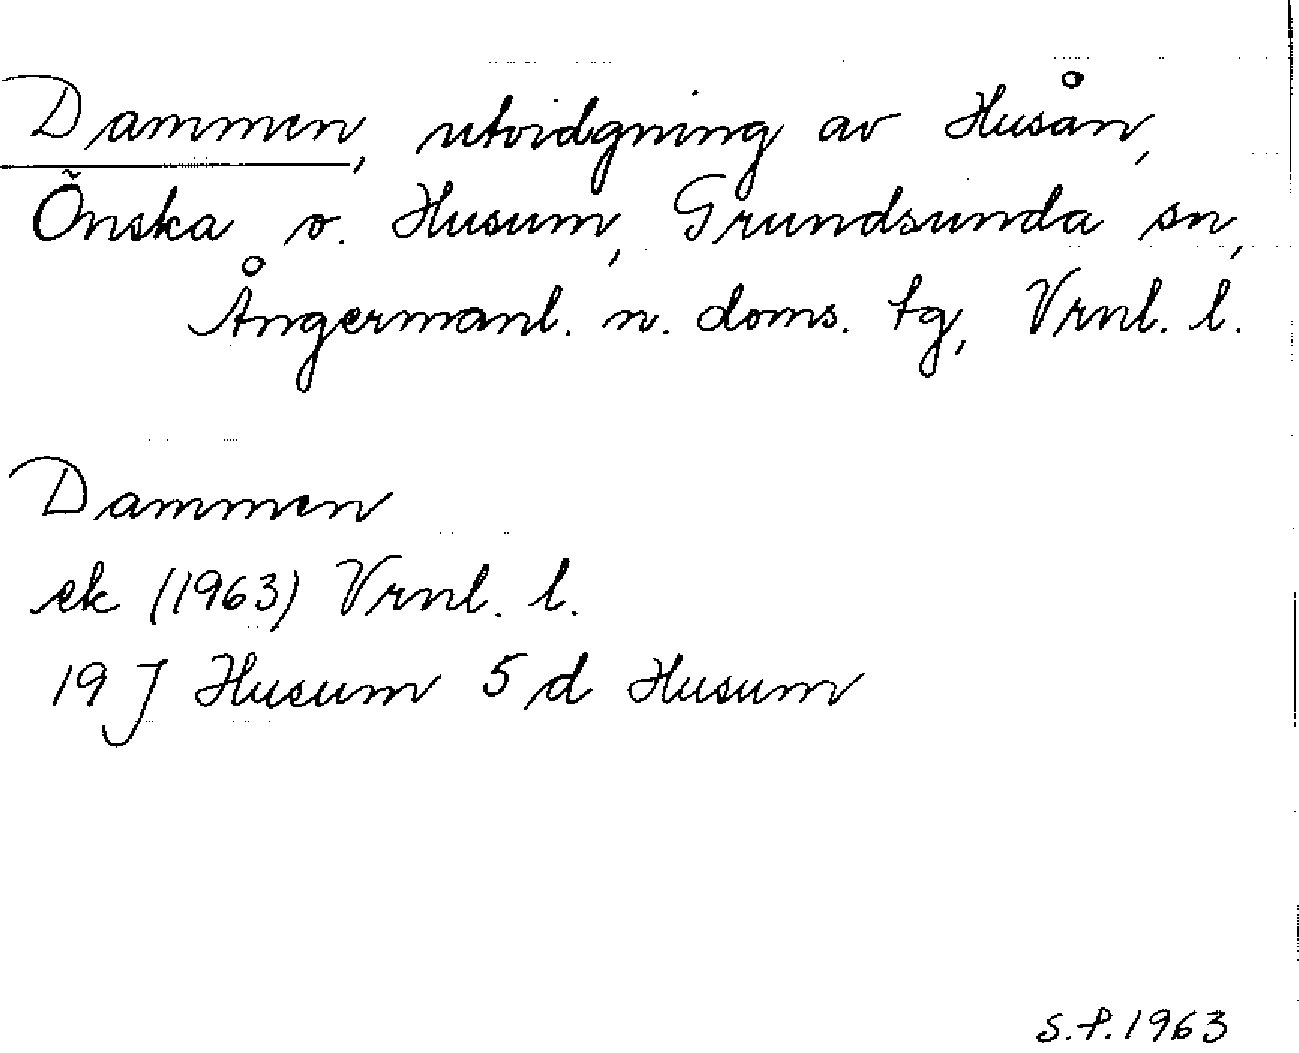 Dammen, utvidgning av Husån,
Önska o. Husum, Grundsunda sn,
Ångermanl. n. doms. tg, Vrnl. l.
Dammen
ek (1963) Vrnl. l.
19 J Husum 5 d Husum
S.P. 1963